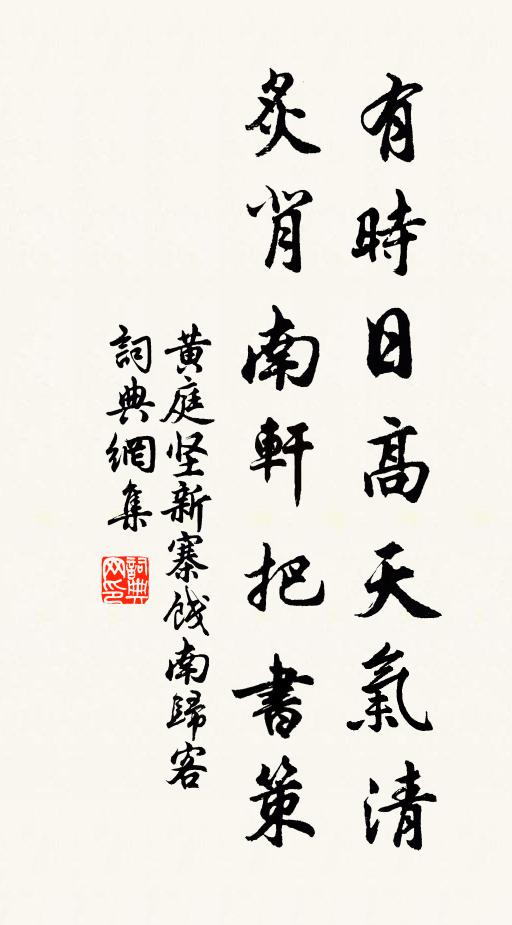 有時日高天氣清
炙背南軒把書策
黃庭坚新寨饯南歸客
詞典網集
詞典网印